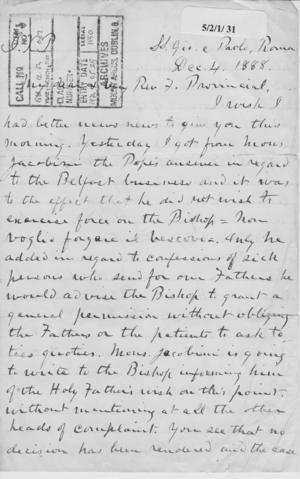 5/2/1/31
CALL NO
CLASS
NUMBER
ENTRY DATE
1980
ARCHIVES
MOUNT ARGUS, DUBLIN 6.
SS. Gio. e Paolo, Roma
Dec. 4, 1888.
My Rev F. Provincial,
I wish I
had better news to give you this
morning. Yesterday I got from Mons.
Jacobini the Pope's answer in regard
to the Belfast business and it was
to the effect that he did not wish to
exercise force on the Bishop = Non
voglio forzare il vescovo =. Only he
added in regard to confessions of sick
persons who send for our Fathers he
would advise the Bishop to grant a
general permission without obliging
the Fathers or the patients to ask to
ties quoties. Mons. Jacobini is going
to write to the Bishop informing him
of the Holy Father's wish on this point,
without mentioning at all the other
heads of complaint. You see that no
decision has been rendered and the case